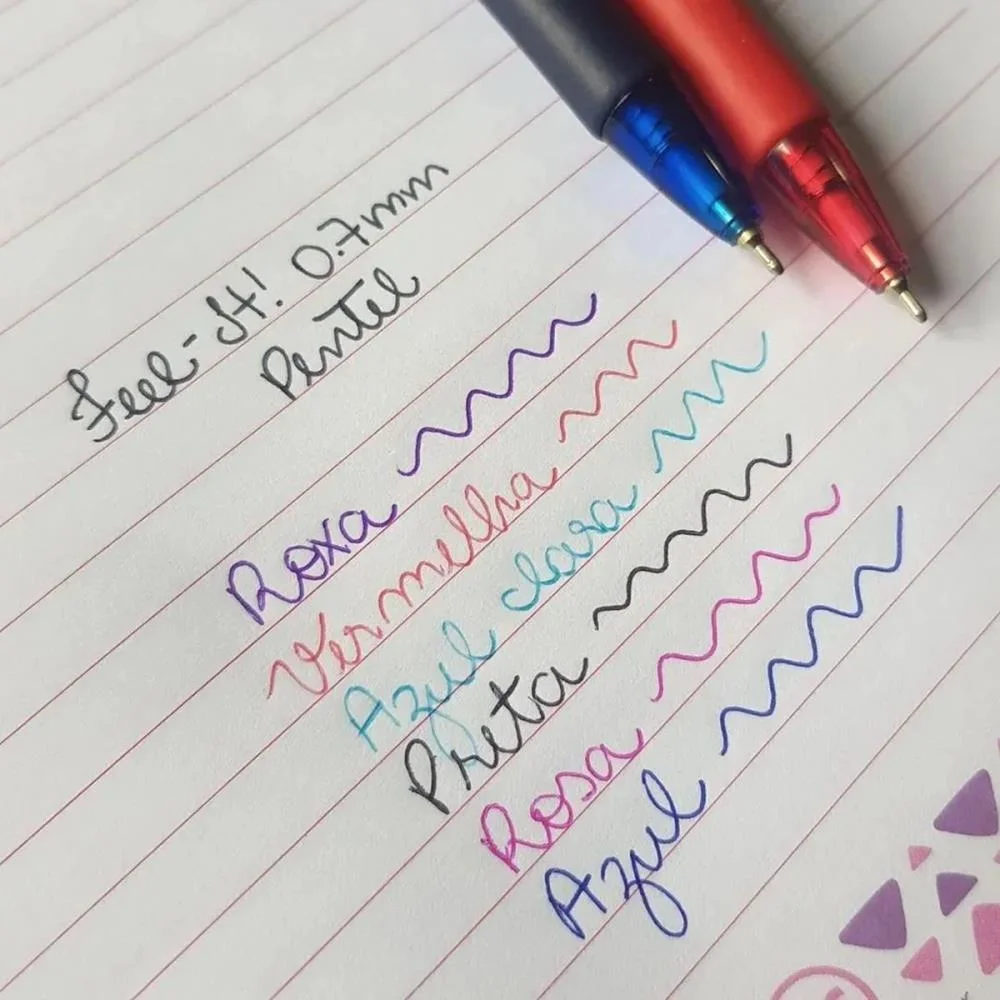 Feel-It! 0.7mm
Pentel
Roxa
Vermelha
Azul clara
Preta
Rosa
Azul